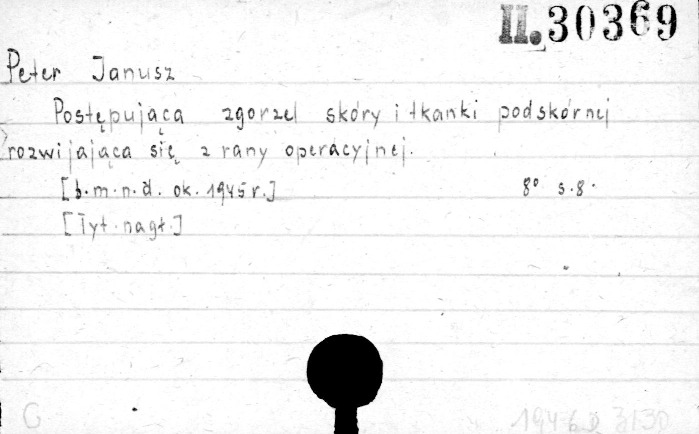 II.30369
Peter Janusz
Postępująca zgorzel skóry i tkanki podskórnej
rozwijająca się z rany operacyjnej.
[b.m.n.d. ok. 1945r.] 8° s.8.
[Tyt. nagł.]
G 1946